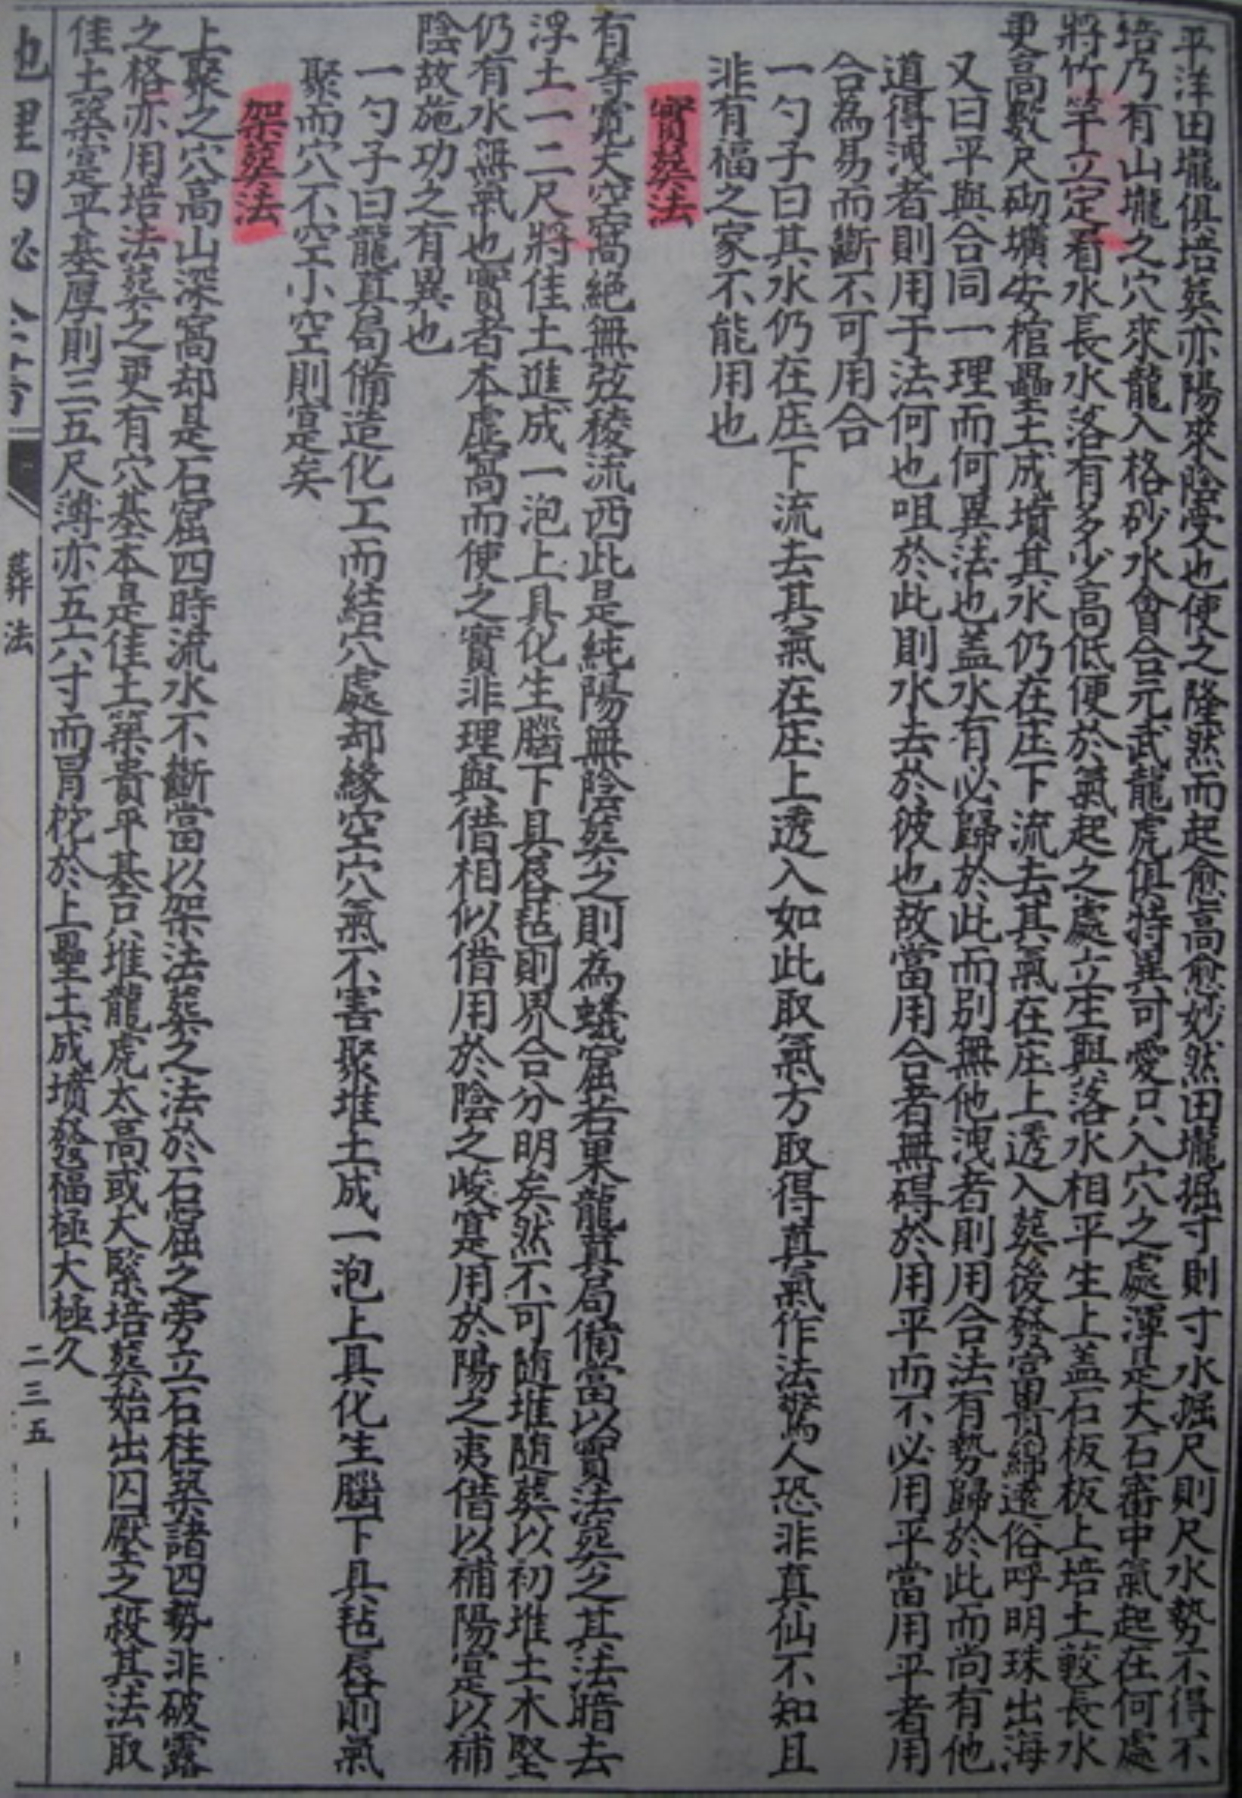 平洋田壠俱培葬亦陽來陰受也使之隆然而起愈高愈妙然田壠掘寸則寸水掘尺則尺水勢不得不
培乃有山壠之穴來龍入格砂水會合元武龍虎俱特異可愛只入穴之處渾是大石審中氣起在何處
將竹竿立定看水長水落有多少高低便於氣起之處立生與落水相平生上蓋石板板上培土較長水
更高數尺砌壙安棺壘土成墳其水仍在庄下流去其氣在庄上透入葬後發富貴綿遠俗呼明珠出海
又曰平與合同一理而何異法也蓋水有必歸於此而別無他洩者則用合法有勢歸於此而尚有他
道得洩者則用于法何也咀於此則水去於彼也故當用合者無碍於用平而不必用平當用平者用
合為易而斷不可用合
一勺子曰其水仍在庄下流去其氣在庄上透入如此取氣方取得真氣作法驚人恐非真仙不知且
非有福之家不能用也
實葬法
有等寬大空窩絕無弦稜流西此是純陽無陰葬之則為蟻窟若果龍真局備當以實法葬之其法暗去
浮土一二尺將佳土進成一泡上具化生腦下具唇毡則界合分明矣然不可隨堆隨葬以初堆土木堅
仍有水無氣也實者本虛窩而使之實非理與借相似借用於陰之峻寔用於陽之夷借以補陽寔以補
陰故施功之有異也
一勺子曰龍真局備造化工而結穴處却緣空穴氣不害聚堆土成一泡上具化生腦下具毡唇則氣
聚而穴不空小空則寔矣
架葬法
上聚之穴高山深窩却是石窟四時流水不斷當以架法葬之法於石窟之旁立石柱築諸四勢非破露
之格亦用培法葬之更有穴基本是佳土築貴平基只堆龍虎太高或大緊培葬始出囚壓之殺其法取
佳土築寔平基厚則三五尺薄亦五六寸而冐棺於上壘土成墳發福極大極久
葬法
二三五